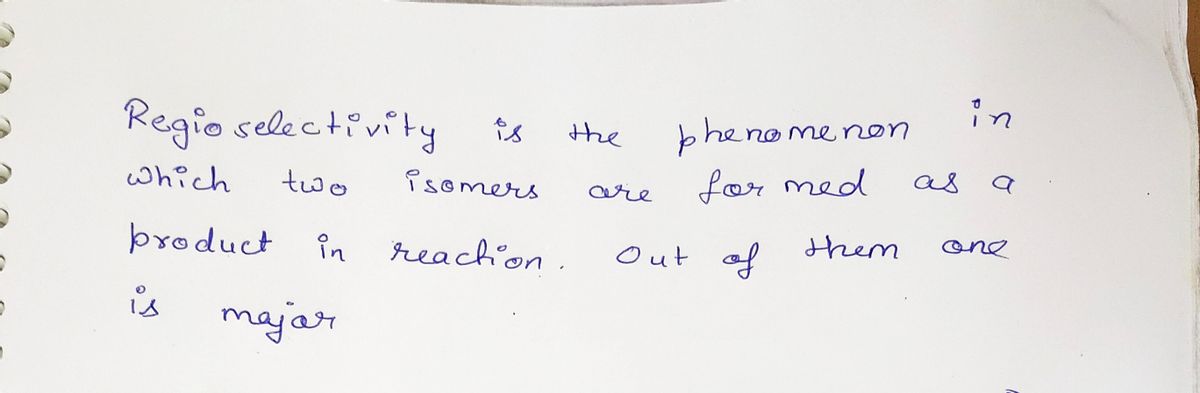 Regioselectivity is the phenomenon in
which two isomers are formed as a
product in reaction. Out of them one
is major